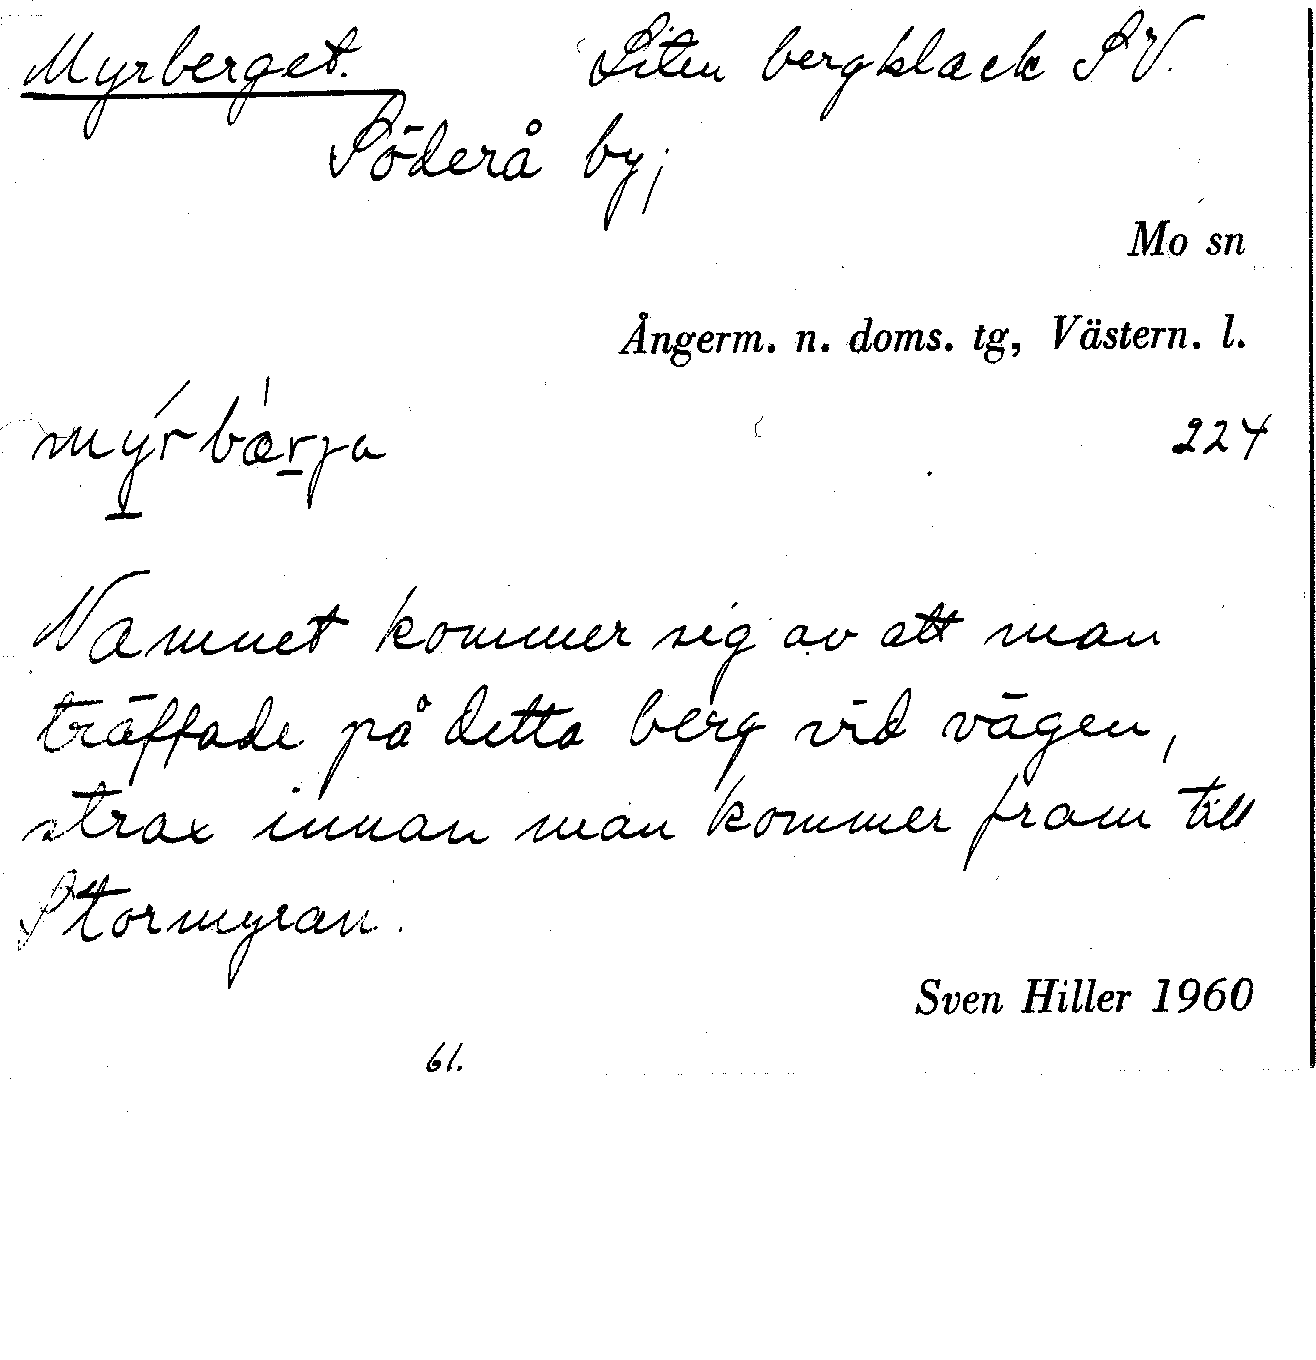 Myrberget. Liten bergklack SV.
Söderå by;
Mo sn
Ångerm. n. doms. tg, Västern. l.
224
Namnet kommer sig av att man
träffade på detta berg vid vägen,
strax innan man kommer fram till
Stormyran.
Sven Hiller 1960
61.